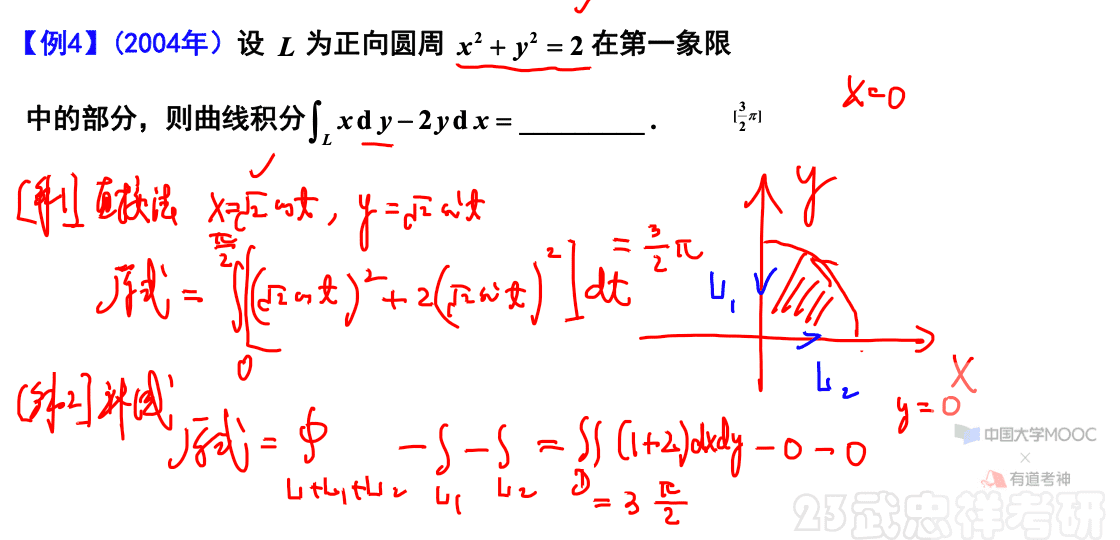 【例4】(2004年) 设 L 为正向圆周 x² + y² = 2 在第一象限
中的部分，则曲线积分∫_L x d y − 2 y d x = ________ .
[3/2 π]
x=0
[解1] 直接法 x=√2 cos t , y=√2 sin t
原式 = ∫_0^{π/2} [(√2 cos t)² + 2(√2 sin t)²] dt = 3/2 π
y
L₁
L₂
x
y = 0
[解2] 补线
原式 = ∮_{L+L₁+L₂} − ∫_{L₁} − ∫_{L₂} = ∬_D (1+2)dxdy − 0 − 0
= 3 π/2
中国大学MOOC
×
有道考神
23武忠祥考研